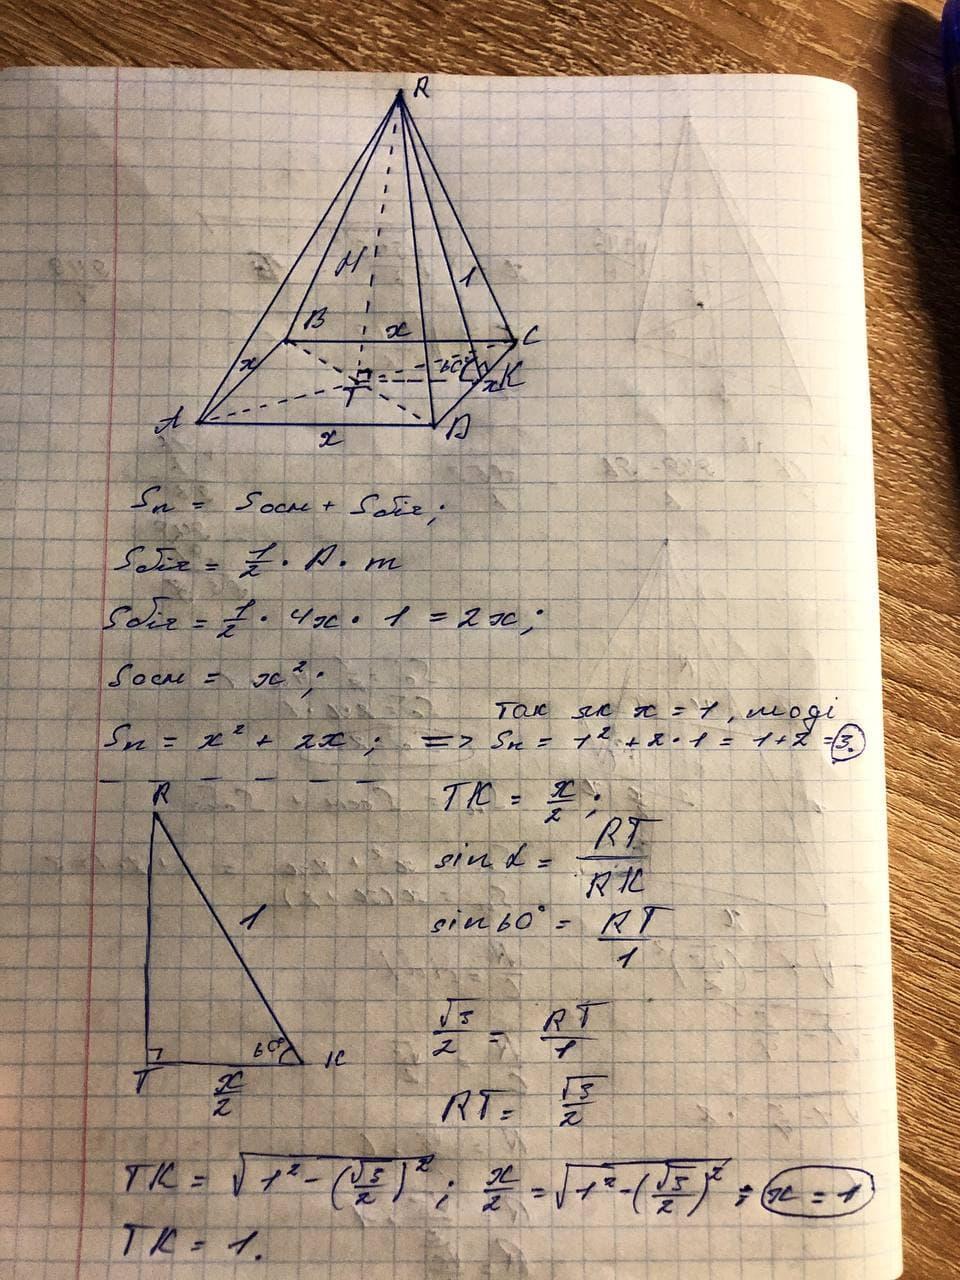 R
H
1
B
x
C
x
60°
K
x
T
A
x
D
Sп = Sосн + Sбіч;
Sбіч = 1/2 · P · m
Sбіч = 1/2 · 4x · 1 = 2x;
Sосн = x²;
Так як x = 1, тоді
Sп = x² + 2x ; => Sп = 1² + 2·1 = 1+2 = 3.
R
1
60°
T
K
x/2
TK = x/2;
sin α = RT/RK
sin 60° = RT/1
√3/2 = RT/1
RT = √3/2
TK = √(1² - (√3/2)²) ; x/2 = √(1² - (√3/2)²) ; x = 1
TK = 1.